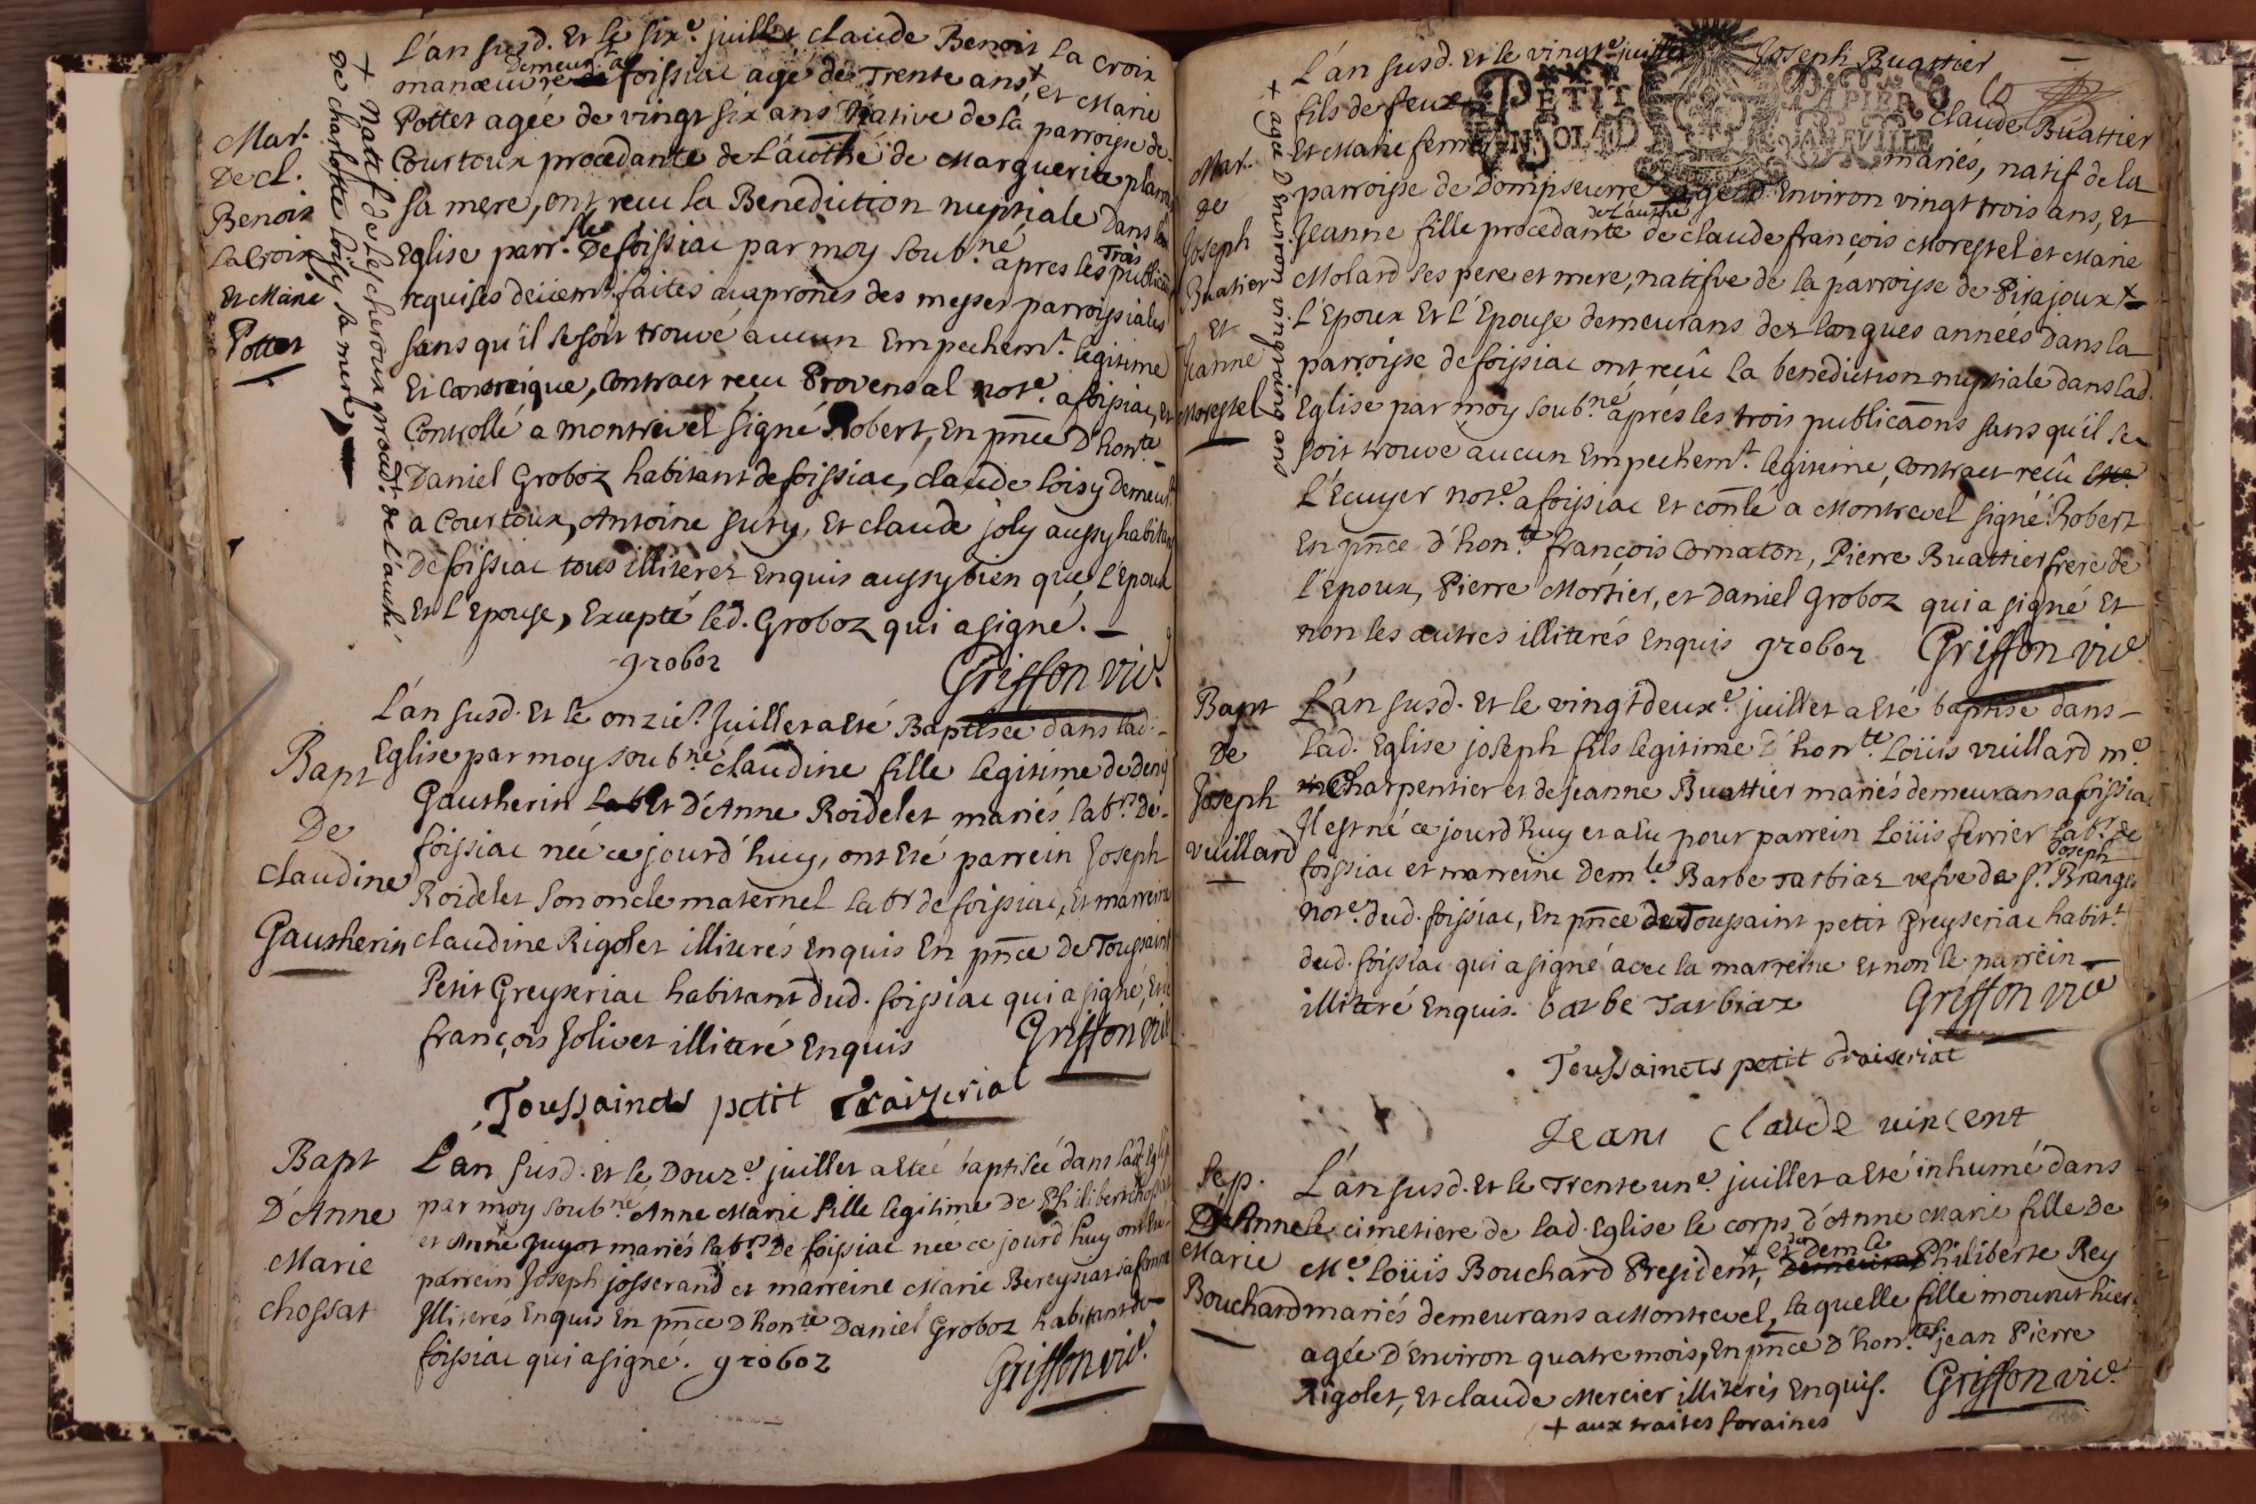 L'an susd. Et le six.e juillet, claude Benoit La croix
manœuvre demeur.t a foissiac agé de Trente ans + et Marie
Pottet agée de vingt six ans Native de la parroisse de
Courtoux procedante de L'authé de Marguerite
sa mere, ont receu la Benediction nuptiale dans la
Eglise parr.lle De foissiac par moy soub.né apres les Trois
requises deüem.t faites aux prônes des messes parroissiales
sans qu'il se soit trouvé aucun Empechem.t legitime
Et Canonique, Contract receu Provensal not.e a foissiac, Et
Controllé a montrevel signé Robert, En pñce D'hon.te
Daniel Groboz habitant de foissiac, claude Loisy demeur.t
a Courtoux, Antoine Suty, Et claude joly aussy habitans
de foissiac tous illiterez Enquis aussy bien que L'Epoux
Et l'Epouse, Excepté led. Groboz qui a signé.
groboz Griffon vic.
+ Natif de Lescheroux proced.t de l'authé
de charlotte Loisy sa mere
Mar.
De cl.
Benoit
La Croix
Et Marie
Pottet
L'an susd. Et le onzie.e Juillet a Eté Baptisée dans lad.
Eglise par moy soub.né claudine fille legitime de denis
Gautherin Lab Et d'Anne Roidelet mariés lab.rs De
foissiac née ce jourd'huy, ont Eté parrein Joseph
Roidelet son oncle maternel lab.r de foissiac, Et marreine
claudine Rigolet illiterés Enquis En pñce de Toussaint
Petit Greyseriac habitant dud. foissiac qui a signé, Et
françois Solivet illiteré Enquis Griffon vic
Toussainets petit Craizeriat
Bapt
De
claudine
Gautherin
L'an susd. et le Douz.e juillet a Eteé baptisée dans lad. Eglise
par moy soub.né Anne Marie fille legitime de Philibert chossat
et Anne Guyot mariés lab.rs De foissiac née ce jourd'huy ont Eu
parrein Joseph josserand et marreine Marie Bereysiat sa femme
Illiterés Enquis En pñce D'hon.te Daniel Groboz habitant de
foissiac qui a signé. groboz Griffon vic.
Bapt
D'Anne
Marie
chossat
L'an susd. Et le vingt.e juillet Joseph Buattier
fils de feux claude Buattier
Et Marie ferrier mariés, natif de la
PETIT PAPIER
parroisse de Dompseurre agé D'Environ vingt trois ans, Et
Jeanne fille procedante de L'authé de claude françois Morestel et Marie
Molard ses pere et mere, natifve de la parroisse de Pirajoux +
L'Epoux Et L'Epouse demeurans dez longues années dans la
parroisse de foissiac ont reçû la benediction nuptiale dans lad.
Eglise par moy soub.né aprés les trois publicaōns sans qu'il se
soit trouvé aucun Empechem.t legitime, Contract reçû
L'Ecuyer not.e a foissiac Et con̄lé a Montrevel signé Robert
En pñce d'hon.te françois Cornaton, Pierre Buattier frere de
l'epoux, Pierre Mortier, et Daniel Groboz qui a signé Et
non les autres illiterés Enquis groboz Griffon vic
+ agée D'Environ vingt cinq ans
Mar.
de
Joseph
Buatier
et
Jeanne
Morestel
L'an susd. Et le vingt deux.e juillet a Eté baptisé dans
lad. Eglise joseph fils legitime D'hon.te Loüis vuillard m.e
Charpentier et de jeanne Buattier mariés demeurans a foissiac
Il est né ce jourd'huy et a Eu pour parrein Loüis ferrier Lab.r de
foissiac et marreine Dem.le Barbe Tarbiaz vefve de S.r Joseph Branges
not.e dud. foissiac, En pñce de Toussaint petit Greyseriac habit.t
dud. foissiac qui a signé avec la marreine Et non le parrein
illiteré Enquis. barbe Tarbiaz Griffon vic
Toussainets petit Craiseriat
Jean claude vincent
Bapt
De
Joseph
vuillard
L'an susd. Et le Trente un.e juillet a Eté inhumé dans
le cimetiere de lad. Eglise le corps d'Anne Marie fille De
M.e Loüis Bouchard President, + et de Dem.le Philiberte Rey
mariés demeurans a Montrevel, laquelle fille mourut hier
agée D'Environ quatre mois, En pñce D'hon.tes jean Pierre
Rigolet, Et claude Mercier illiterés Enquis. Griffon vic.
+ aux traites foraines
Sep.
D'Anne
Marie
Bouchard